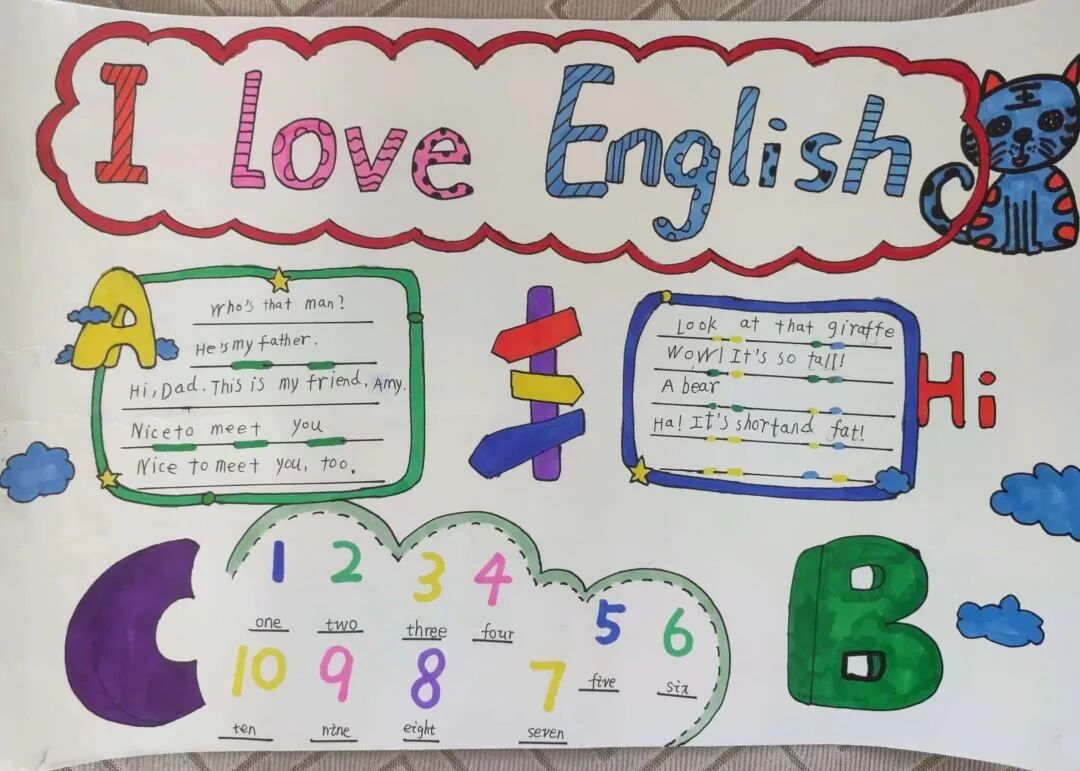 I Love English
王
A
Who's that man?
He is my father.
Hi, Dad. This is my friend, Amy.
Nice to meet you
Nice to meet you, too.
Look at that giraffe
Wow! It's so tall!
A bear
Ha! It's short and fat!
Hi
C
1 2 3 4 5 6
one two three four five six
10 9 8 7
ten nine eight seven
B